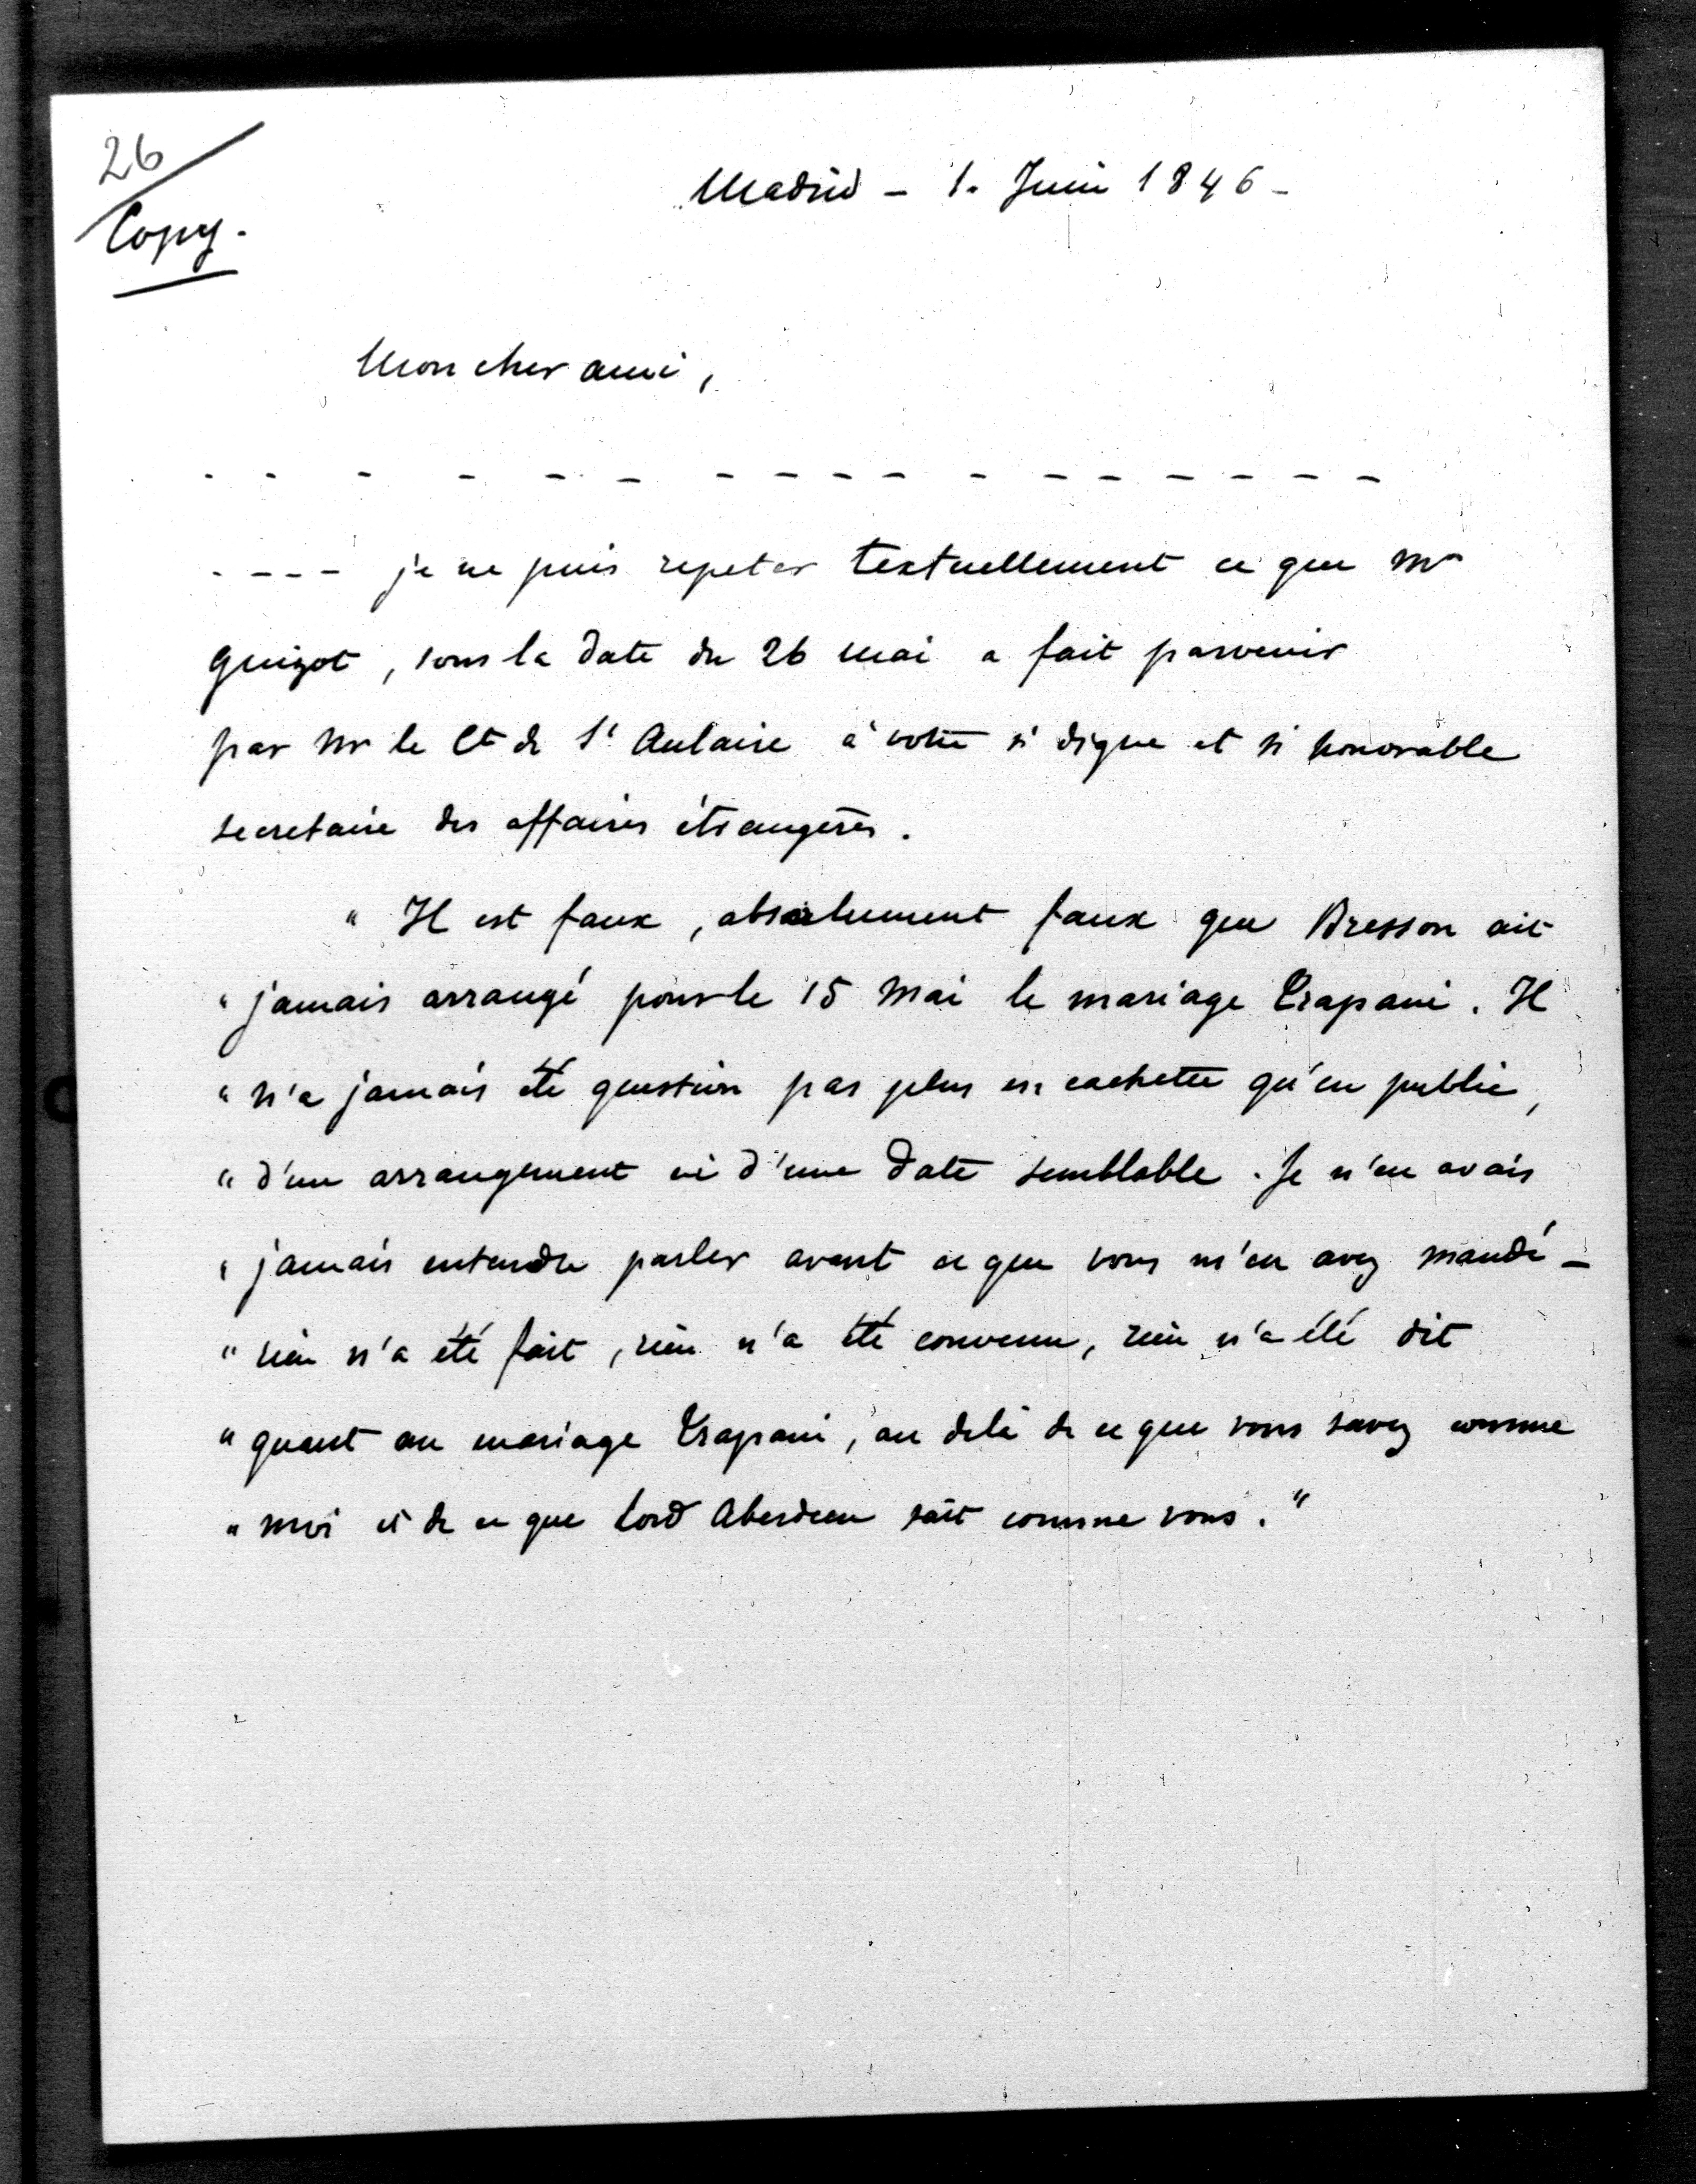 26
Copy.
Madrid - 1. Juin 1846 -
Mon cher ami,
- - - - - - - - - - - - - - - - - -
- - - - je ne puis repeter textuellement ce que Mr
Guizot, sous la date du 26 mai a fait parvenir
par Mr le Ct de St Aulaire à votre si digne et si honorable
secretaire des affaires étrangères.
" Il est faux, absolument faux que Bresson ait
" jamais arrangé pour le 15 Mai le mariage Trapani. Il
" n'a jamais été question pas plus en cachette qu'en public,
" d'un arrangement ni d'une date semblable. Je n'en avais
" jamais entendu parler avant ce que vous m'en avez mandé -
" rien n'a été fait, rien n'a été convenu, rien n'a été dit
" quant au mariage Trapani, au delà de ce que vous savez comme
" moi et de ce que Lord Aberdeen sait comme vous. "